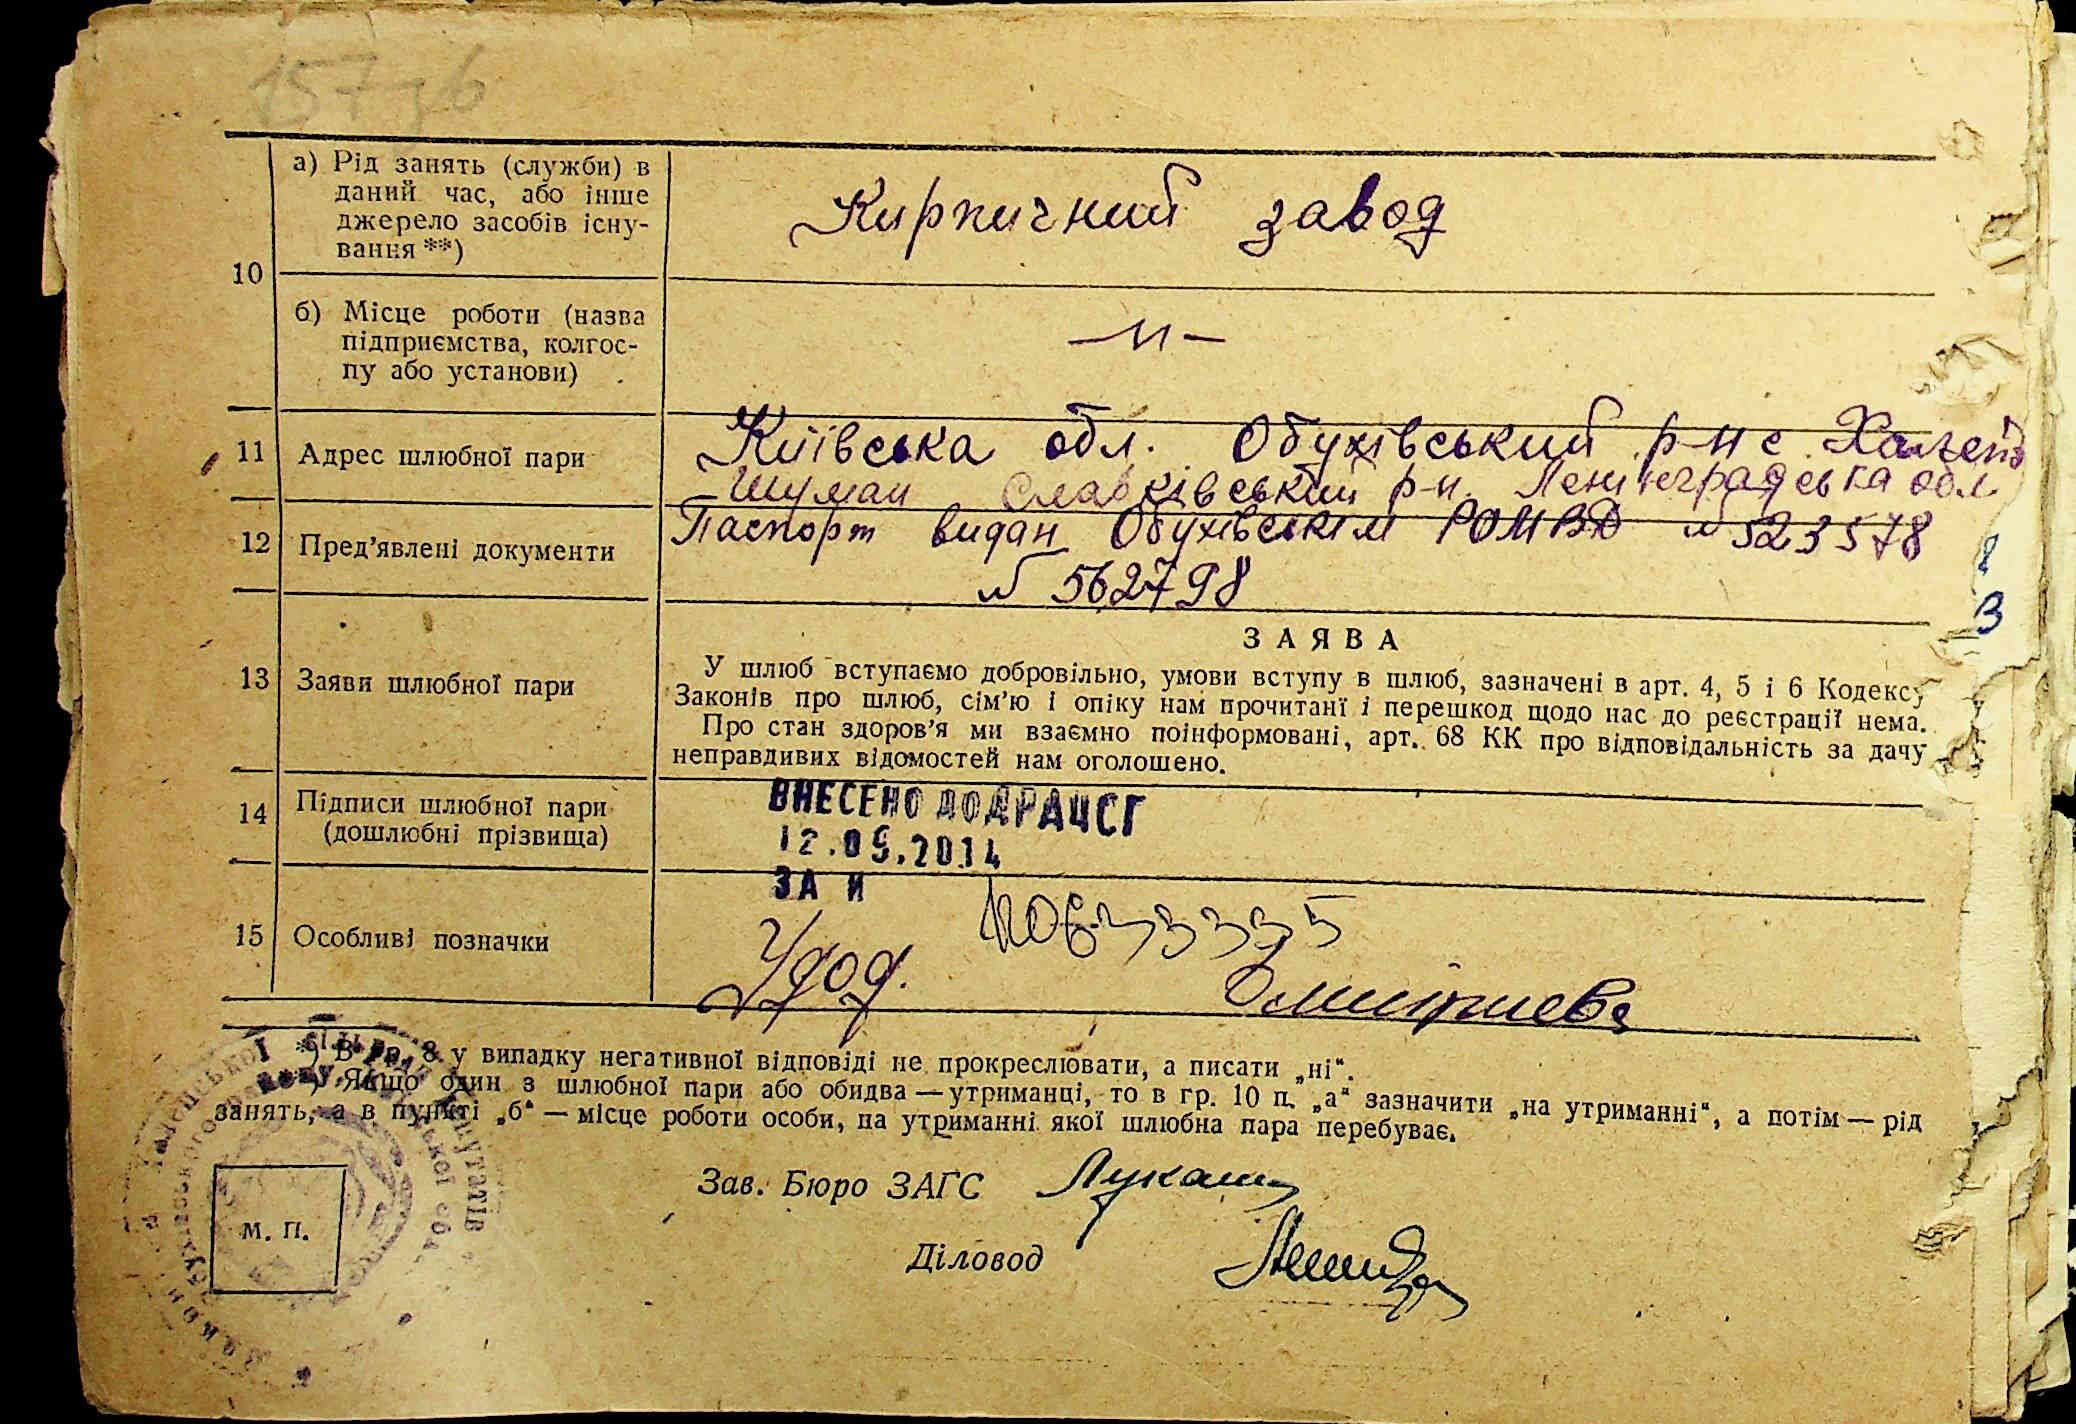 157зв
10
а) Рід занять (служби) в
даний час, або інше
джерело засобів існу-
вання **)
Кирпичний завод
б) Місце роботи (назва
підприємства, колгос-
пу або установи)
—״—
11
Адрес шлюбної пари
Київська обл. Обухівський р-н с.
Шуман Славківський р-н. Ленінградська обл.
12
Пред'явлені документи
Паспорт видан Обухівським РОМВД № 523578
№ 562798
13
Заяви шлюбної пари
ЗАЯВА
У шлюб вступаємо добровільно, умови вступу в шлюб, зазначені в арт. 4, 5 і 6 Кодексу
Законів про шлюб, сім'ю і опіку нам прочитані і перешкод щодо нас до реєстрації нема.
Про стан здоров'я ми взаємно поінформовані, арт. 68 КК про відповідальність за дачу
неправдивих відомостей нам оголошено.
14
Підписи шлюбної пари
(дошлюбні прізвища)
ВНЕСЕНО ДО ДРАЦСГ
12.09.2014
ЗА И
15
Особливі позначки
Удод.
*) В гр. 8 у випадку негативної відповіді не прокреслювати, а писати „ні“.
**) Якщо один з шлюбної пари або обидва — утриманці, то в гр. 10 п. „а“ зазначити „на утриманні“, а потім — рід
занять, а в пункті „б“ — місце роботи особи, на утриманні якої шлюбна пара перебуває.
Зав. Бюро ЗАГС Лукаш
Діловод
М. П.